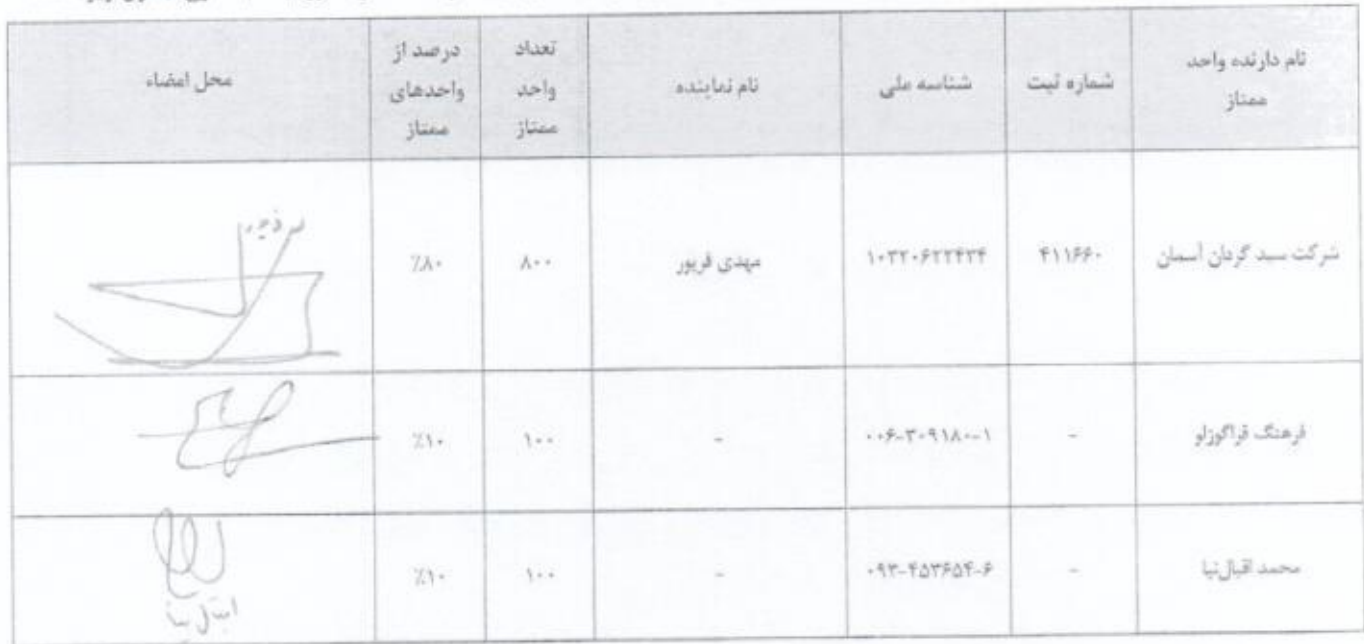 نام دارنده واحد ممتاز | شماره ثبت | شناسه ملی | نام نماینده | تعداد واحد ممتاز | درصد از واحدهای ممتاز | محل امضاء
شرکت سبد گردان آسمان | ۴۱۱۶۶۰ | ۱۰۳۲۰۶۲۲۴۳۴ | مهدی فریور | ۸۰۰ | ٪۸۰
فرهنگ قراگوزلو | - | ۰۰۶-۳۰۹۱۸۰-۱ | - | ۱۰۰ | ٪۱۰
محمد اقبال‌نیا | - | ۰۹۳-۴۵۳۶۵۴-۶ | - | ۱۰۰ | ٪۱۰ | اقبال نیا